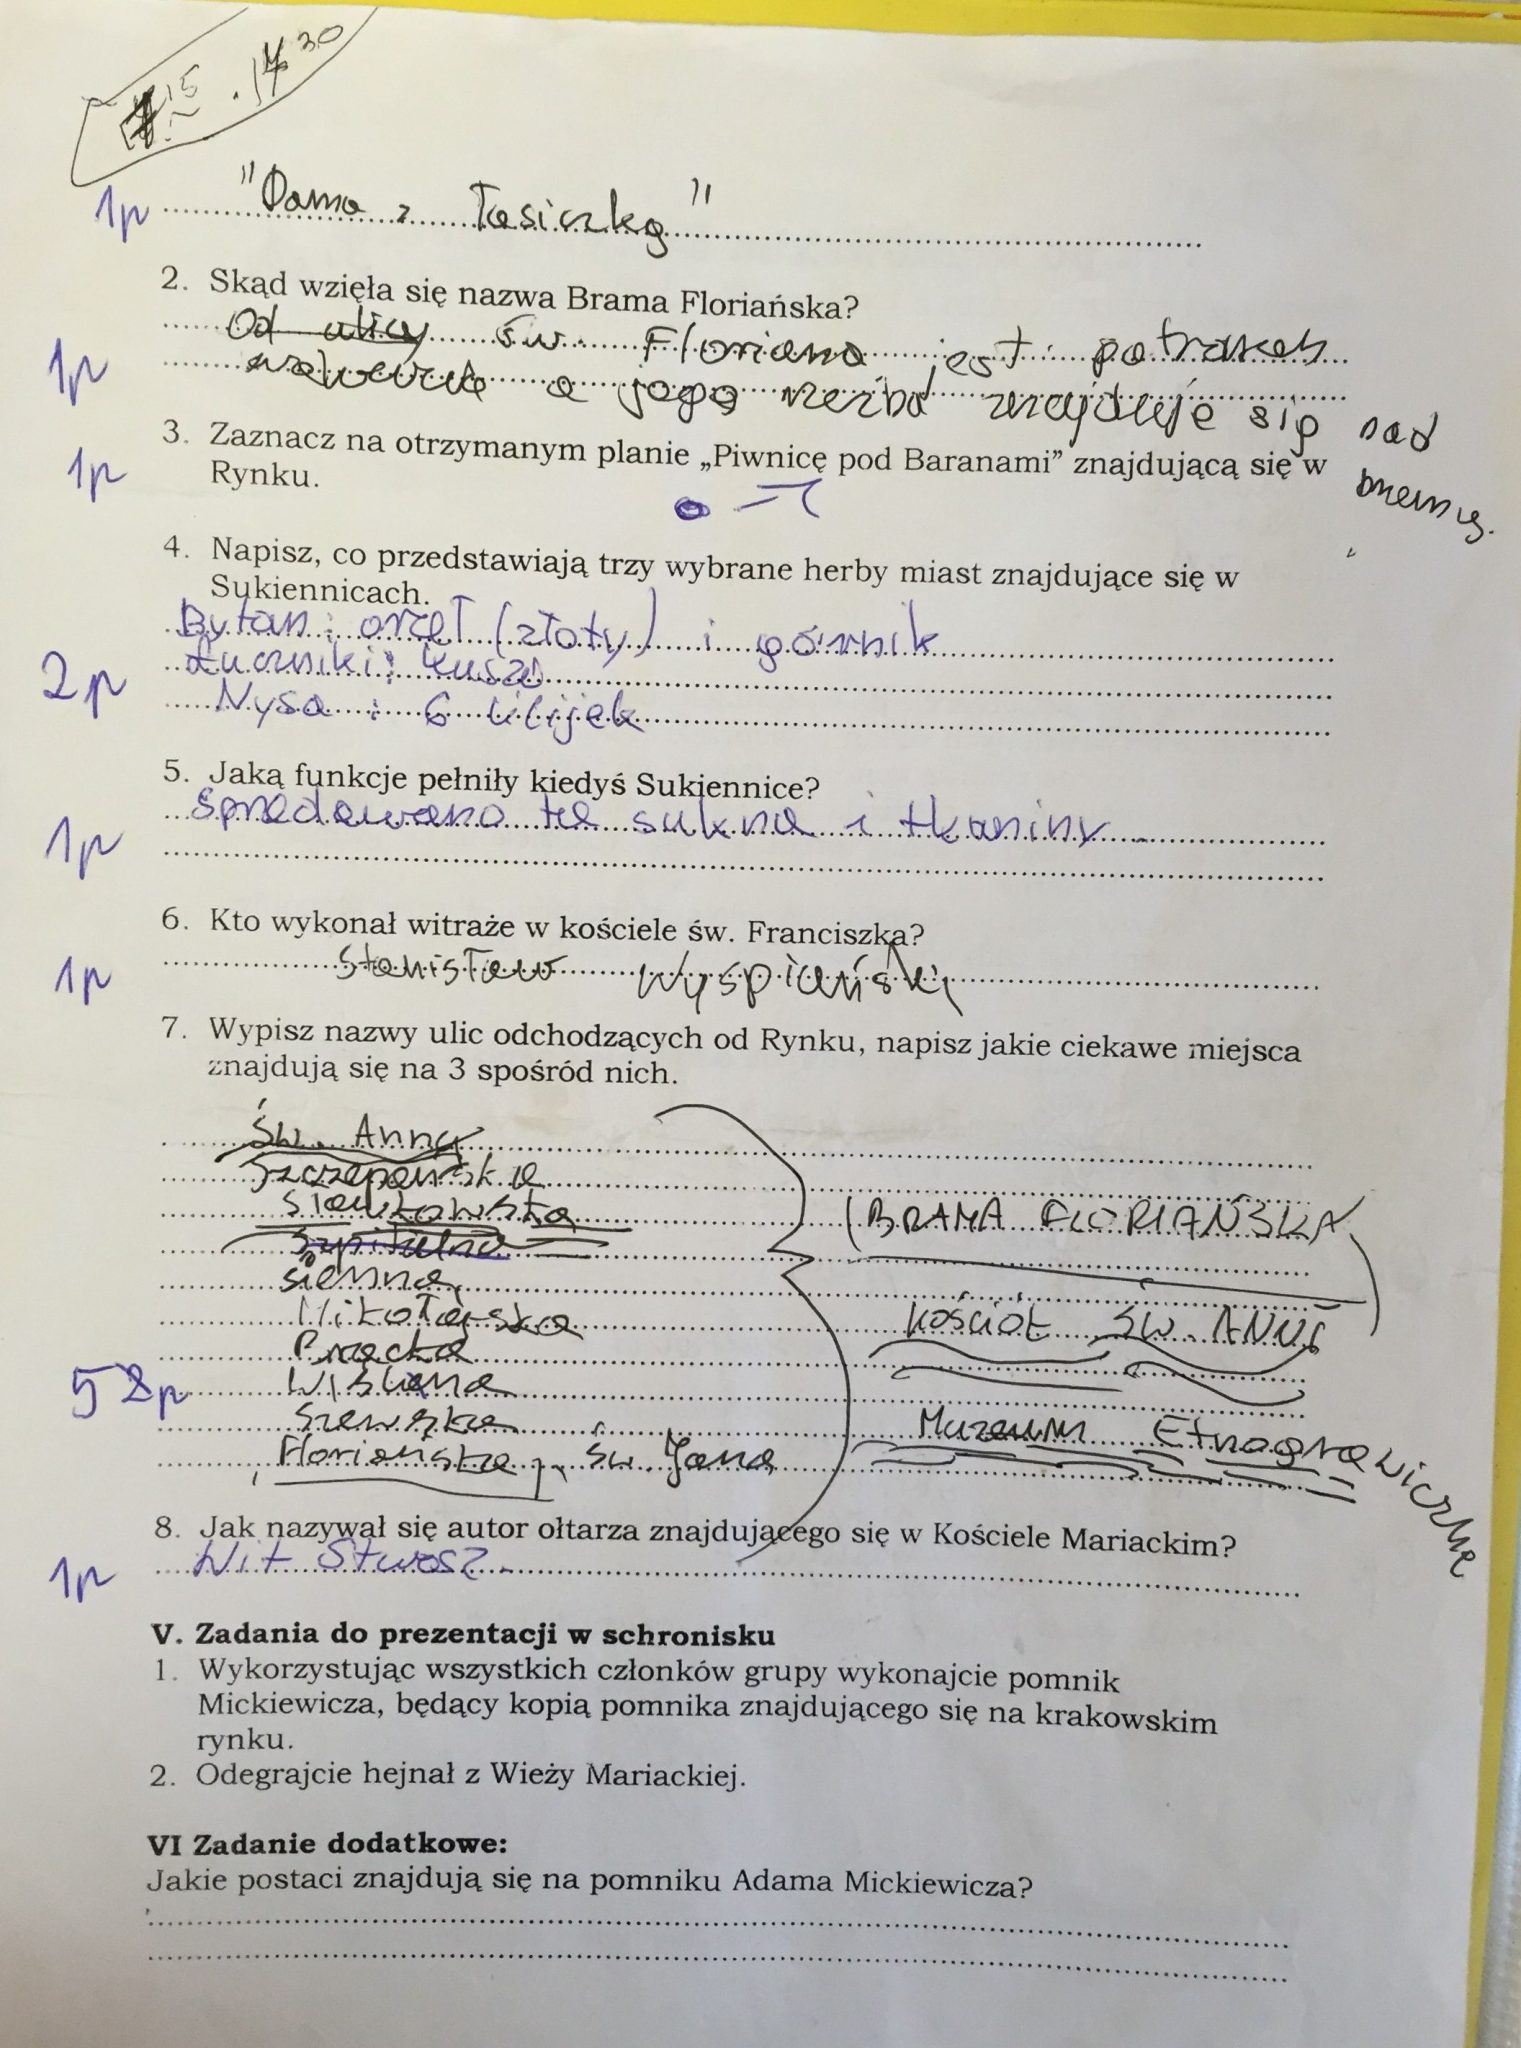 15 . 17 30
1p "Dama z Łasiczką"
2. Skąd wzięła się nazwa Brama Floriańska?
Od ulicy św. Floriana jest patronem
1p a jego rzeźba znajduje się nad
bramą.
3. Zaznacz na otrzymanym planie „Piwnicę pod Baranami” znajdującą się w
1p Rynku.
4. Napisz, co przedstawiają trzy wybrane herby miast znajdujące się w
Sukiennicach.
Bytom: orzeł (złoty) i górnik
2p kusza
Nysa : 6 lilijek
5. Jaką funkcje pełniły kiedyś Sukiennice?
Sprzedawano tu sukna i tkaniny.
1p
6. Kto wykonał witraże w kościele św. Franciszka?
1p Stanisław Wyspiański
7. Wypisz nazwy ulic odchodzących od Rynku, napisz jakie ciekawe miejsca
znajdują się na 3 spośród nich.
Św. Anny
Szczepańska
Sławkowska (BRAMA FLORIAŃSKA)
Szpitalna
Sienna
Mikołajska Kościół ŚW. ANNY
Bracka
5 p Wiślna
Szewska Muzeum Etnograwiczne
Floriańska, św. Jana
8. Jak nazywał się autor ołtarza znajdującego się w Kościele Mariackim?
1p Wit Stwosz.
V. Zadania do prezentacji w schronisku
1. Wykorzystując wszystkich członków grupy wykonajcie pomnik
Mickiewicza, będący kopią pomnika znajdującego się na krakowskim
rynku.
2. Odegrajcie hejnał z Wieży Mariackiej.
VI Zadanie dodatkowe:
Jakie postaci znajdują się na pomniku Adama Mickiewicza?